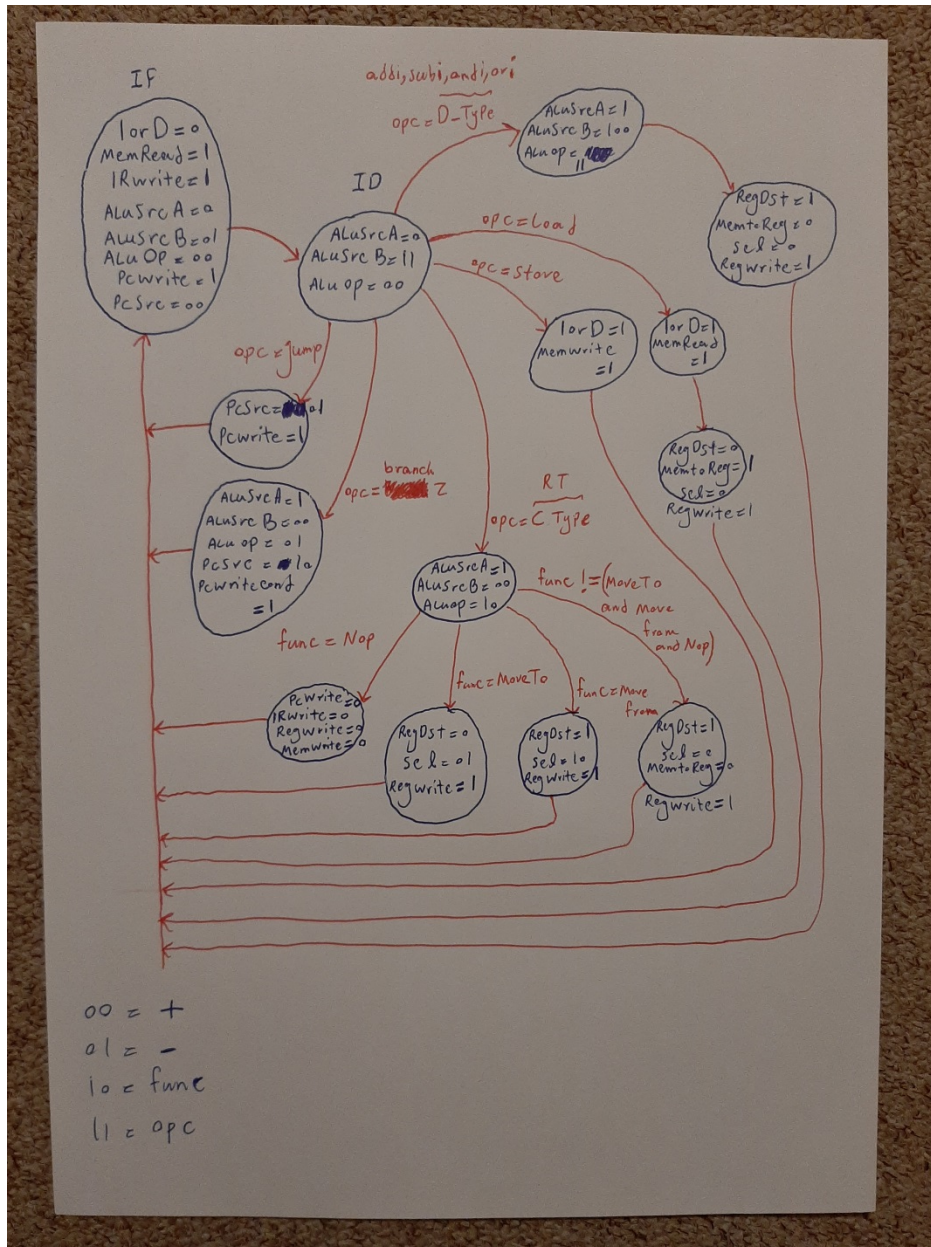 IF
IorD=0
MemRead=1
IRwrite=1
ALuSrc A=0
ALuSrc B=01
ALu OP=00
PcWrite=1
PcSrc=00
ID
ALuSrcA=0
ALuSrc B=11
ALu op=00
addi,subi,andi,ori
opc=D-Type
ALuSrcA=1
ALuSrc B=100
ALu op=
11
RegDst=1
MemtoReg=0
sel=0
Regwrite=1
opc=Load
opc=store
IorD=1
Memwrite
=1
IorD=1
MemRead
=1
RegDst=0
MemtoReg=1
sel=0
Regwrite=1
opc=jump
PcSrc=01
Pcwrite=1
branch
opc= Z
ALuSrcA=1
ALuSrc B=00
ALu op=01
PcSrc=10
PcWritecond
=1
RT
opc=C Type
ALuSrcA=1
ALuSrcB=00
ALuop=10
func != (MoveTo
and Move
from
and Nop)
func=Nop
PcWrite=0
IRwrite=0
Regwrite=0
Memwrite=0
func=MoveTo
RegDst=0
sel=01
Regwrite=1
func=Move
from
RegDst=1
sel=10
Regwrite=1
RegDst=1
sel=0
MemtoReg=0
Regwrite=1
00 = +
01 = -
10 = func
11 = opc